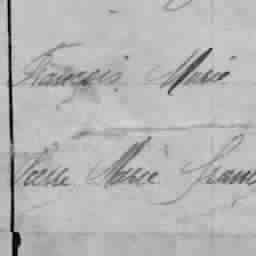 François Marie
Pierre Marie Franç